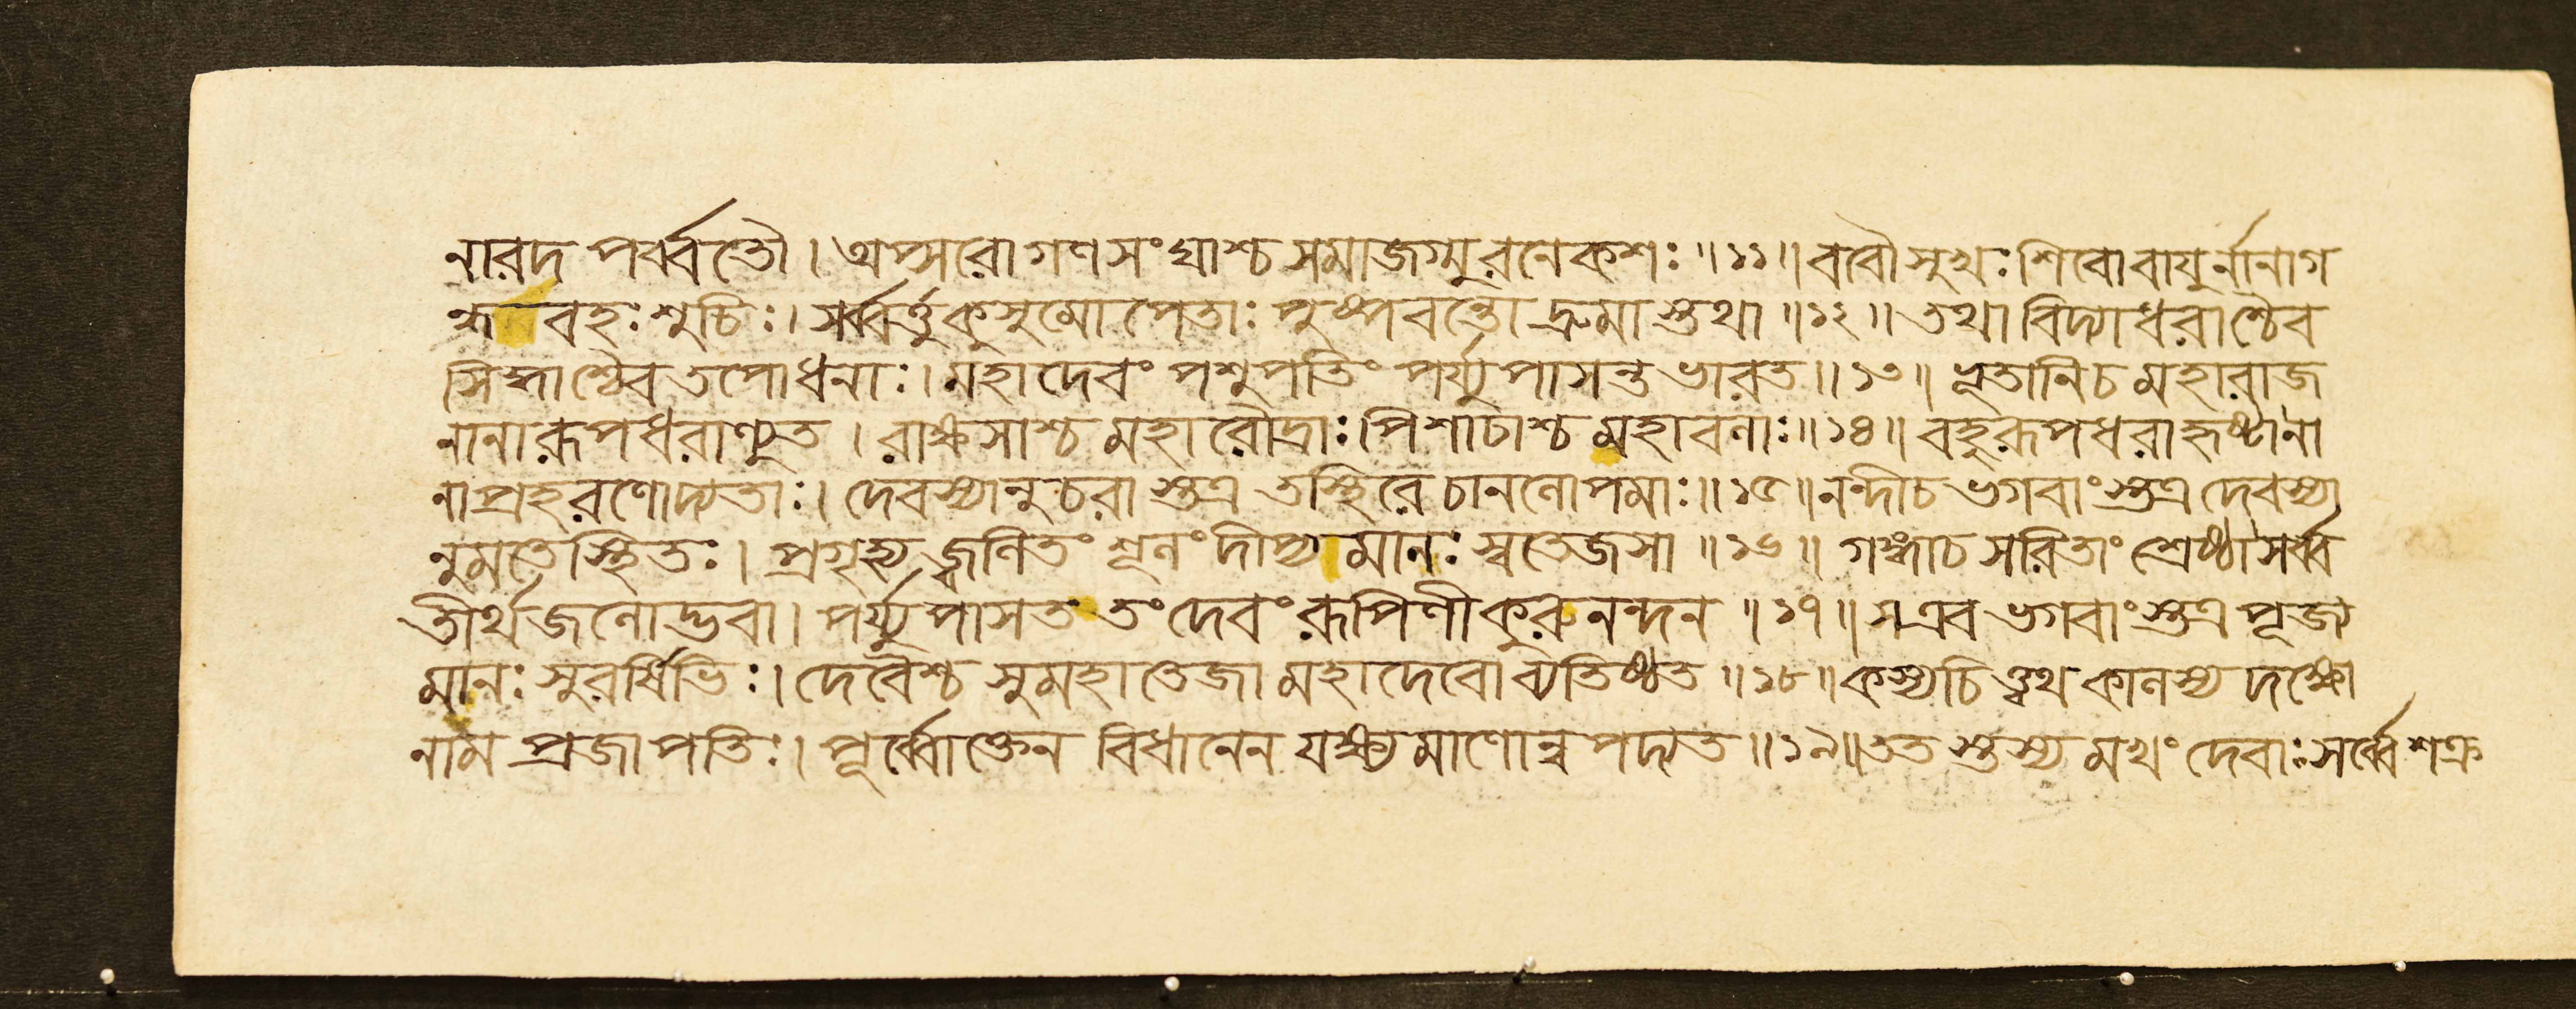 নারদ পর্ব্বতৌ। অপ্সরোগণসংঘাশ্চ সমাজগ্মুরনেকশঃ॥১১॥ ববৌ সুখঃ শিবো বায়ুর্নানাগ
ন্ধ বহঃ শুচিঃ। সর্ব্বর্ত্তুকুসুমোপেতাঃ পুষ্পবন্তো দ্রুমাস্তথা॥১২॥ তথা বিদ্যাধরাশ্চৈব
সিদ্ধাশ্চৈব তপোধনাঃ। মহাদেবং পশুপতিং পর্য্যুপাসন্ত ভারত॥১৩॥ ভূতানি চ মহারাজ
নানারূপধরাণ্যুত। রাক্ষসাশ্চ মহারৌদ্রাঃ পিশাচাশ্চ মহাবলাঃ॥১৪॥ বহুরূপধরাহৃষ্টানা
নাপ্রহরণোদ্যতাঃ। দেবস্যানুচরাস্তত্র তস্থিরে চানলোপমাঃ॥১৫॥ নন্দী চ ভগবাংস্তত্র দেবস্যা
নুমতে স্থিতঃ। প্রগৃহ্য জ্বলিতং শূলং দীপ্যমানঃ স্বতেজসা॥১৬॥ গঙ্গা চ সরিতাং শ্রেষ্ঠা সর্ব্ব
তীর্থজলোদ্ভবা। পর্য্যুপাসত তং দেবং রূপিণী কুরুনন্দন॥১৭॥ স এব ভগবাংস্তত্র পূজ্য
মানঃ সুরর্ষিভিঃ। দেবৈশ্চ সুমহাতেজা মহাদেবো ব্যতিষ্ঠত॥১৮॥ কস্যচিত্ত্বথ কালস্য দক্ষো
নাম প্রজাপতিঃ। পূর্ব্বোক্তেন বিধানেন যক্ষ্যমাণোন্বপদ্যত॥১৯॥ ততস্তস্য মখং দেবাঃ সর্ব্বে শক্র